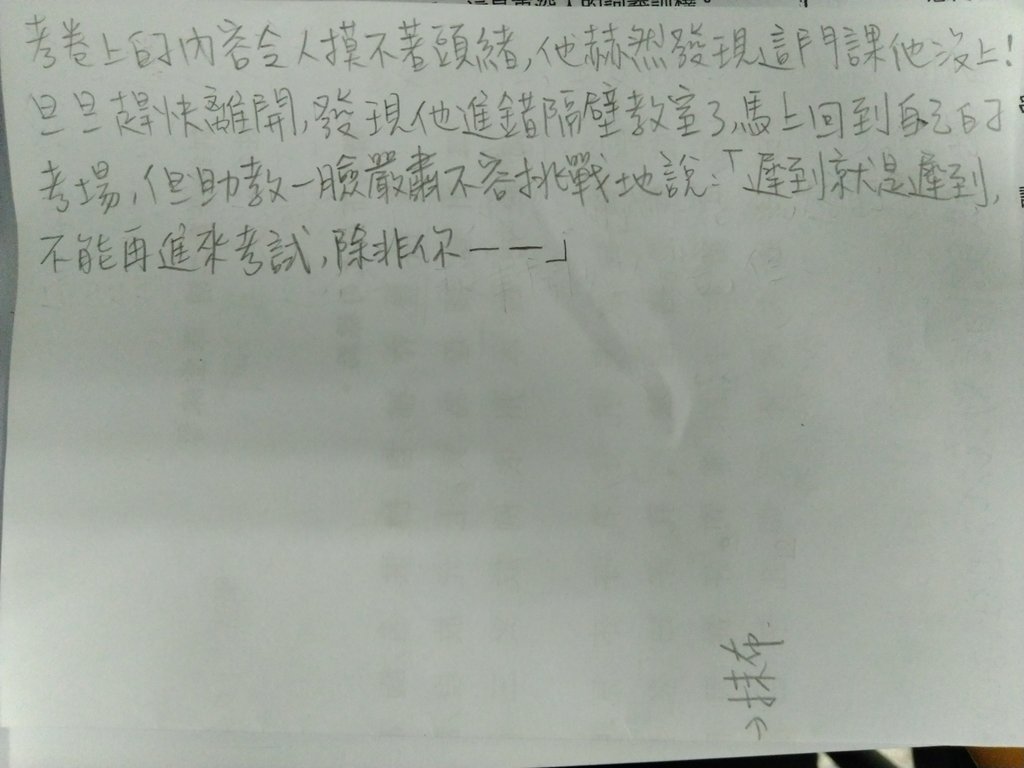 考卷上的內容令人摸不著頭緒,他赫然發現這門課他沒上!
旦旦趕快離開,發現他進錯隔壁教室了,馬上回到自己的
考場,但助教一臉嚴肅不容挑戰地說:「遲到就是遲到,
不能再進來考試,除非你——」
→抹布.